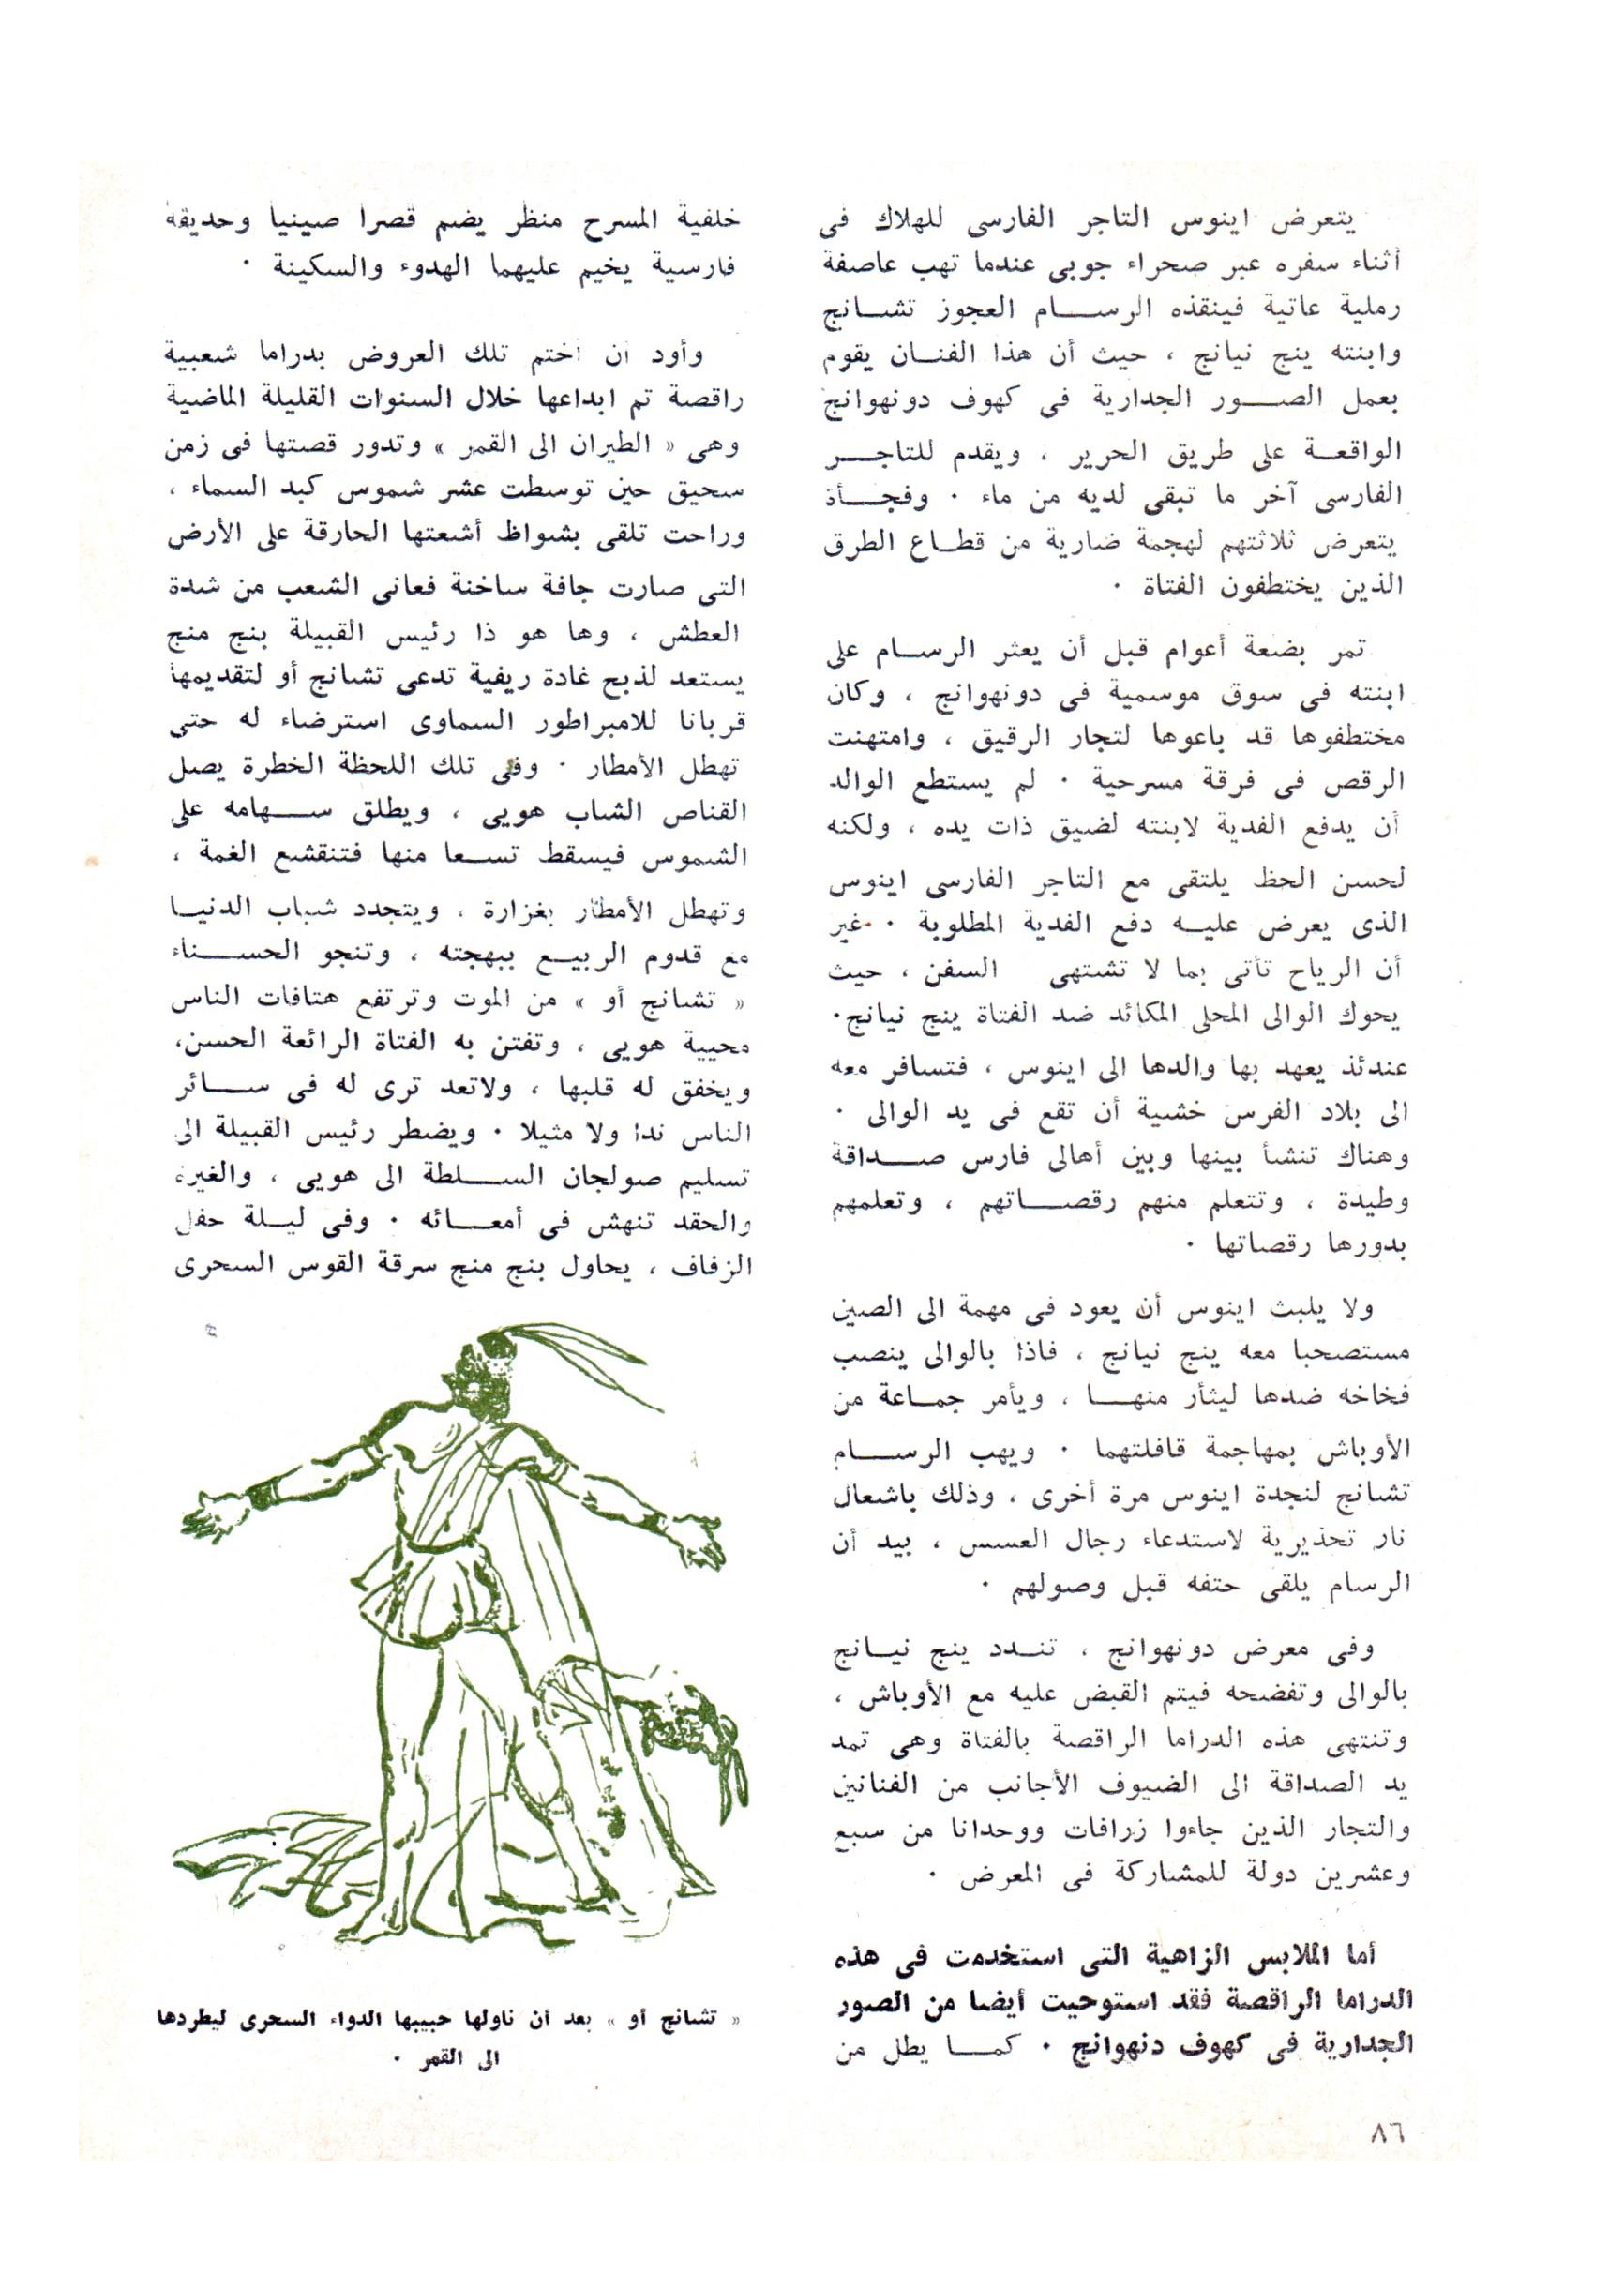 يتعرض اينوس التاجر الفارسى للهلاك فى
أثناء سفره عبر صحراء جوبى عندما تهب عاصفة
رملية عاتية فينقذه الرسام العجوز تشانج
وابنته ينج نيانج ، حيث أن هذا الفنان يقوم
بعمل الصور الجدارية فى كهوف دونهوانج
الواقعة على طريق الحرير ، ويقدم للتاجر
الفارسى آخر ما تبقى لديه من ماء . وفجأة
يتعرض ثلاثتهم لهجمة ضارية من قطاع الطرق
الذين يختطفون الفتاة .
تمر بضعة أعوام قبل أن يعثر الرسام على
ابنته فى سوق موسمية فى دونهوانج ، وكان
مختطفوها قد باعوها لتجار الرقيق ، وامتهنت
الرقص فى فرقة مسرحية . لم يستطع الوالد
أن يدفع الفدية لابنته لضيق ذات يده ، ولكنه
لحسن الحظ يلتقى مع التاجر الفارسى اينوس
الذى يعرض عليه دفع الفدية المطلوبة . غير
أن الرياح تأتى بما لا تشتهى السفن ، حيث
يحوك الوالى المحلى المكائد ضد الفتاة ينج نيانج .
عندئذ يعهد بها والدها الى اينوس ، فتسافر معه
الى بلاد الفرس خشية أن تقع فى يد الوالى .
وهناك تنشأ بينها وبين أهالى فارس صداقة
وطيدة ، وتتعلم منهم رقصاتهم ، وتعلمهم
بدورها رقصاتها .
ولا يلبث اينوس أن يعود فى مهمة الى الصين
مستصحبا معه ينج نيانج ، فاذا بالوالى ينصب
فخاخه ضدها ليثأر منها ، ويأمر جماعة من
الأوباش بمهاجمة قافلتهما . ويهب الرسام
تشانج لنجدة اينوس مرة أخرى ، وذلك باشعال
نار تحذيرية لاستدعاء رجال العسس ، بيد أن
الرسام يلقى حتفه قبل وصولهم .
وفى معرض دونهوانج ، تندد ينج نيانج
بالوالى وتفضحه فيتم القبض عليه مع الأوباش ،
وتنتهى هذه الدراما الراقصة بالفتاة وهى تمد
يد الصداقة الى الضيوف الأجانب من الفنانين
والتجار الذين جاءوا زرافات ووحدانا من سبع
وعشرين دولة للمشاركة فى المعرض .
أما الملابس الزاهية التى استخدمت فى هذه
الدراما الراقصة فقد استوحيت أيضا من الصور
الجدارية فى كهوف دنهوانج . كما يطل من
خلفية المسرح منظر يضم قصرا صينيا وحديقة
فارسية يخيم عليهما الهدوء والسكينة .
وأود أن أختم تلك العروض بدراما شعبية
راقصة تم ابداعها خلال السنوات القليلة الماضية
وهى « الطيران الى القمر » وتدور قصتها فى زمن
سحيق حين توسطت عشر شموس كبد السماء ،
وراحت تلقى بشواظ أشعتها الحارقة على الأرض
التى صارت جافة ساخنة فعانى الشعب من شدة
العطش ، وها هو ذا رئيس القبيلة بنج منج
يستعد لذبح غادة ريفية تدعى تشانج أو لتقديمها
قربانا للامبراطور السماوى استرضاء له حتى
تهطل الأمطار . وفى تلك اللحظة الخطرة يصل
القناص الشاب هويى ، ويطلق سهامه على
الشموس فيسقط تسعا منها فتنقشع الغمة ،
وتهطل الأمطار بغزارة ، ويتجدد شباب الدنيا
مع قدوم الربيع ببهجته ، وتنجو الحسناء
« تشانج أو » من الموت وترتفع هتافات الناس
محيية هويى ، وتفتن به الفتاة الرائعة الحسن،
ويخفق له قلبها ، ولاتعد ترى له فى سائر
الناس ندا ولا مثيلا . ويضطر رئيس القبيلة الى
تسليم صولجان السلطة الى هويى ، والغيرة
والحقد تنهش فى أمعائه . وفى ليلة حفل
الزفاف ، يحاول بنج منج سرقة القوس السحرى
« تشانج أو » بعد أن ناولها حبيبها الدواء السحرى ليطردها
الى القمر .
٨٦